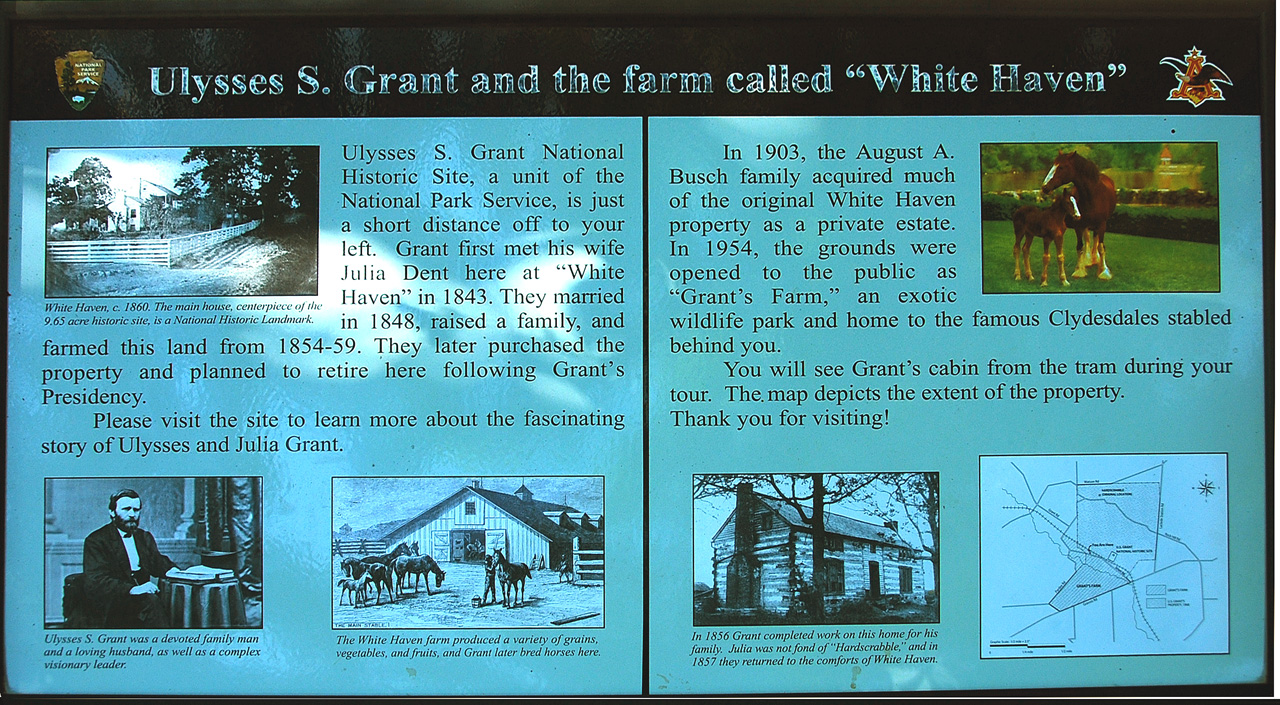 NATIONAL
PARK
SERVICE
Ulysses S. Grant and the farm called “White Haven”
Ulysses S. Grant National
Historic Site, a unit of the
National Park Service, is just
a short distance off to your
left. Grant first met his wife
Julia Dent here at “White
Haven” in 1843. They married
in 1848, raised a family, and
farmed this land from 1854-59. They later purchased the
property and planned to retire here following Grant’s
Presidency.
Please visit the site to learn more about the fascinating
story of Ulysses and Julia Grant.
White Haven, c. 1860. The main house, centerpiece of the
9.65 acre historic site, is a National Historic Landmark.
Ulysses S. Grant was a devoted family man
and a loving husband, as well as a complex
visionary leader.
THE MAIN STABLE.
The White Haven farm produced a variety of grains,
vegetables, and fruits, and Grant later bred horses here.
In 1903, the August A.
Busch family acquired much
of the original White Haven
property as a private estate.
In 1954, the grounds were
opened to the public as
“Grant’s Farm,” an exotic
wildlife park and home to the famous Clydesdales stabled
behind you.
You will see Grant’s cabin from the tram during your
tour. The map depicts the extent of the property.
Thank you for visiting!
In 1856 Grant completed work on this home for his
family. Julia was not fond of “Hardscrabble,” and in
1857 they returned to the comforts of White Haven.
HARDSCRABBLE
You Are Here
U.S. GRANT
NATIONAL HISTORIC SITE
GRANT'S FARM